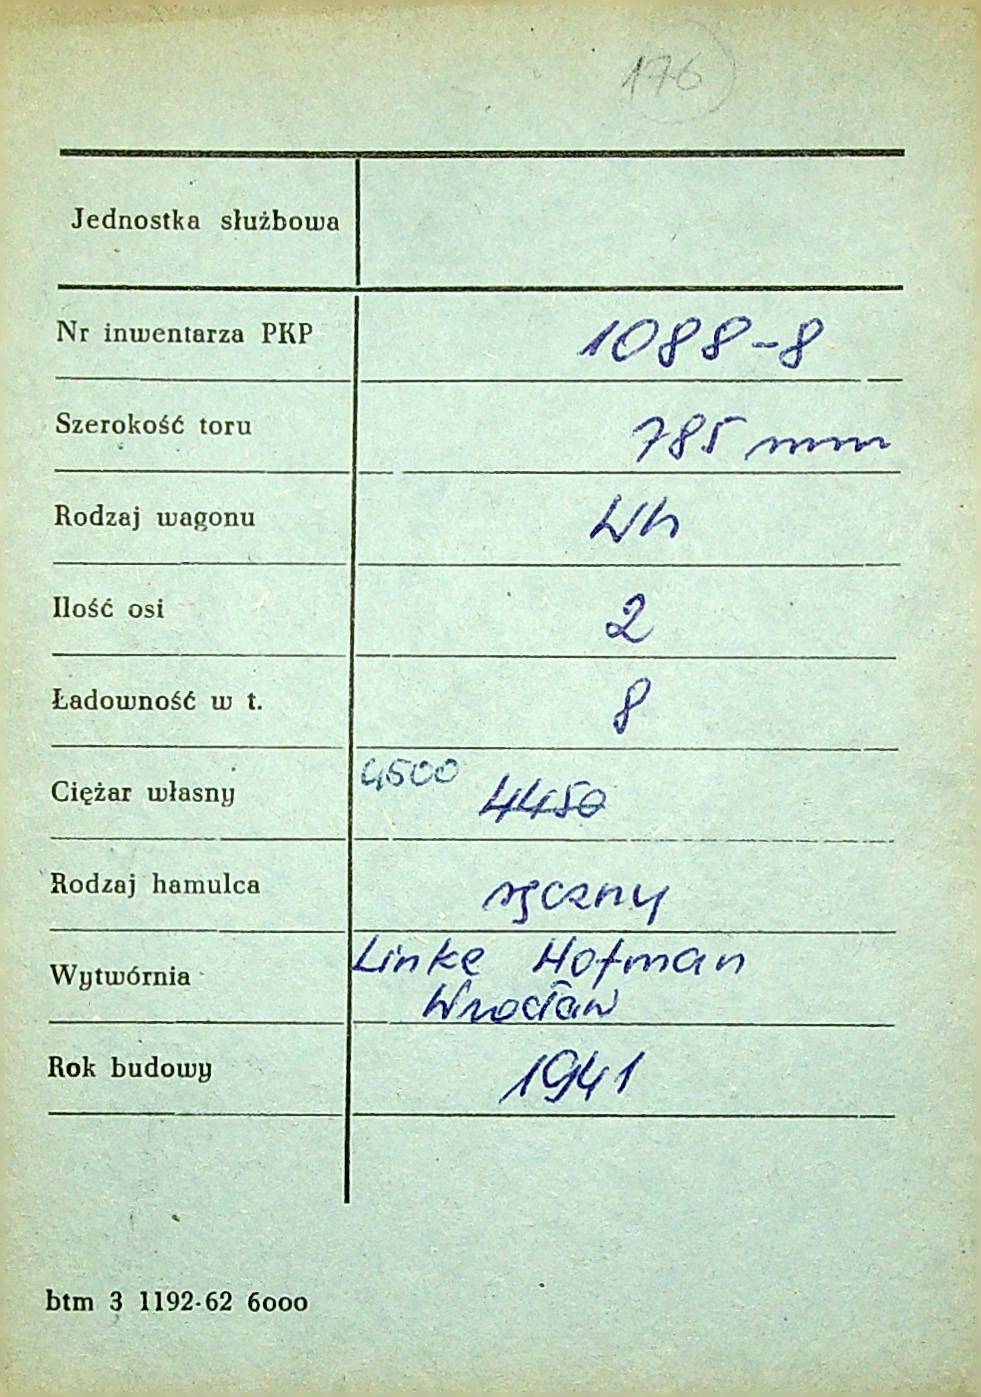 176
Jednostka służbowa
Nr inwentarza PKP 1088-8
Szerokość toru 785 mm
Rodzaj wagonu Wh
Ilość osi 2
Ładowność w t. 8
Ciężar własny 4500 4450
Rodzaj hamulca ręczny
Wytwórnia Linke Hofman
Wrocław
Rok budowy 1941
btm 3 1192-62 6000